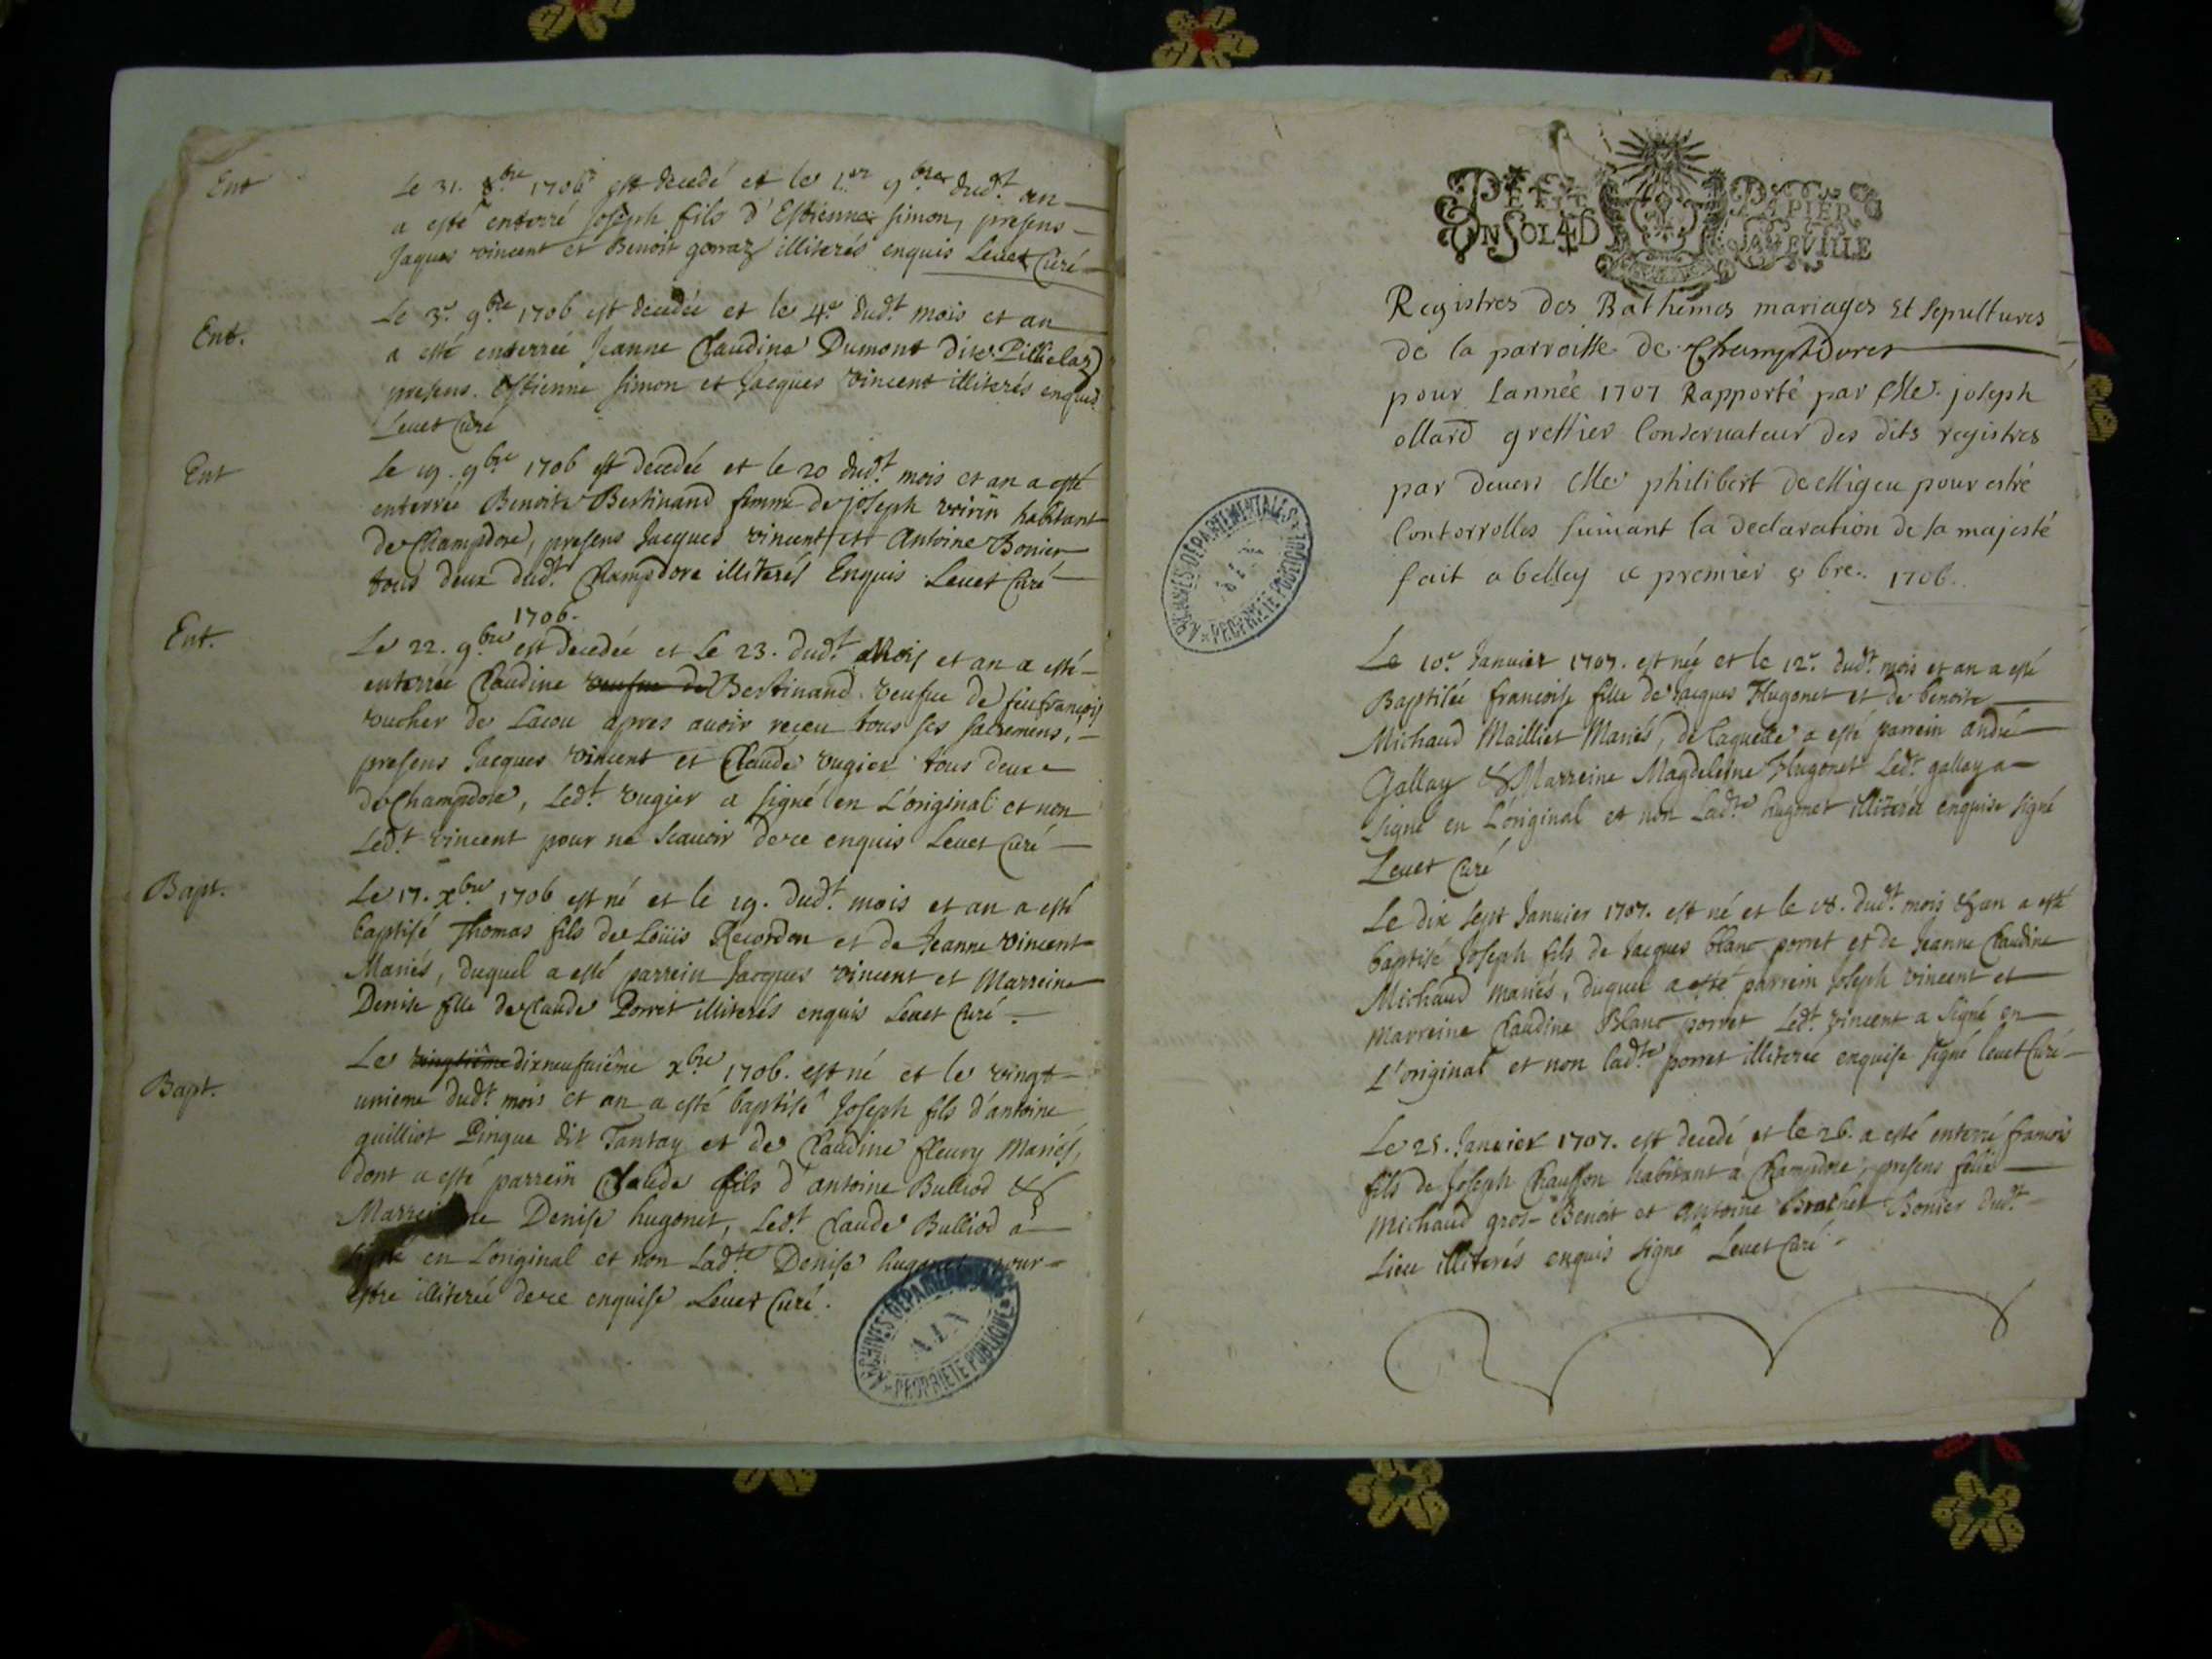 Ent
Le 31. 8bre 1706 est decedé et le 1er 9bre dudt an
a esté enterré Joseph fils d'Estienne simon, presens
Jaques vincent et Benoit gorraz illiterés enquis Levet Curé
Ent.
Le 3e 9bre 1706 est decedée et le 4e dudt mois et an
a esté enterrée Jeanne Claudine Dumont dite Pillielaz
presens. Estienne simon et Jacques Vincent illiterés enquis
Levet Curé
Ent
Le 19. 9bre 1706 est decedée et le 20 dudt mois et an a esté
enterrée Benoite Bertinand femme de joseph voirin habitant
de Champdore, presens Jacques vincent et Antoine Bonier
tous deux dudt Champdore illiterés Enquis Levet Curé
1706.
Ent.
Le 22. 9bre est decedée et Le 23. dudt Mois et an a esté
enterrée Claudine veufue de Bertinand veufue de feu françois
vucher de Lacou apres avoir receu tous ses sacremens,
presens Jacques Vincent et Claude vugier tous deux
de Champdore, Ledt vugier a signé en L'original et non
Ledt vincent pour ne scavoir de ce enquis Levet Curé
Bapt.
Le 17. xbre 1706 est né et le 19. dudt mois et an a esté
baptisé Thomas fils de Loüis Recordon et de Jeanne Vincent
Mariés, duquel a esté parrein Jacques Vincent et Marreine
Denise fille de Claude Porret illiterés enquis Levet Curé.
Bapt.
Le vingtiême dixneufuiême xbre 1706. est né et le vingt
unieme dudt mois et an a esté baptisé Joseph fils d'antoine
quilliot Pingue dit Tantay et de Claudine fleury Mariés,
dont a esté parrein Claude fils d'antoine Bulliod &
Marreine Denise hugonet, Ledt Claude Bulliod a
signé en Loriginal et non Ladte Denise hugonet pour
estre illiterée de ce enquise Levet Curé.
ARCHIVES DEPARTEMENTALES
AIN
PROPRIETE PUBLIQUE
PETIT PAPIER
UN SOL 4D LA FEVILLE
Registres des Bathêmes mariages Et sepultures
de la parroisse de Champdores
pour Lannée 1707 Rapporté par Me. joseph
ollard greffier Conservateur des dits registres
par devers Me philibert de Migieu pour estre
Contorrolles suivant la declaration de sa majesté
fait a belley ce premier 8bre. 1706.
ARCHIVES DEPARTEMENTALES
PROPRIETE PUBLIQUE
Le 10e Janvier 1707. est née et le 12e dudt mois et an a esté
Baptisée françoise fille de Jacques Hugonet et de benoite
Michaud Mailliet Mariés, de laquelle a esté parrein andré
Gallay & Marreine Magdeleine Hugonet Ledt gallay a
signé en L'original et non Ladte hugonet illiterée enquise signé
Levet Curé
Le dix sept Janvier 1707. est né et le 18. dudt mois & an a esté
baptisé Joseph fils de Jacques blanc porret et de Jeanne Claudine
Michaud mariés, duquel a esté parrein Joseph Vincent et
marreine Claudine Blanc porret Ledt Vincent a signé en
L'original et non ladte porret illiterée enquise signé levet Curé
Le 25. Janvier 1707. est decedé et le 26. a esté enterré francois
fils de Joseph Chausson habitant à Champdore, presens felix
Michaud gros-Benoit et antoine Brachet Bonier dudt
Lieu illiterés enquis signé Levet Curé